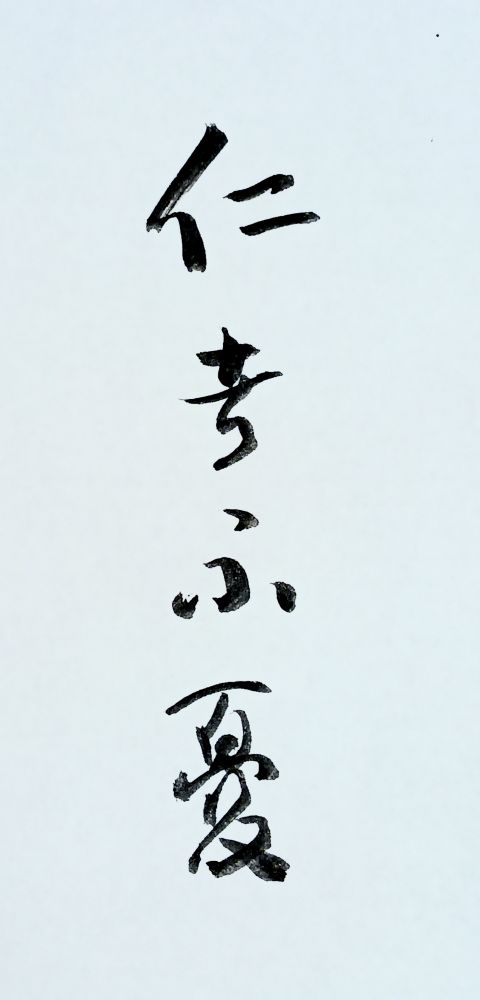 仁者不憂